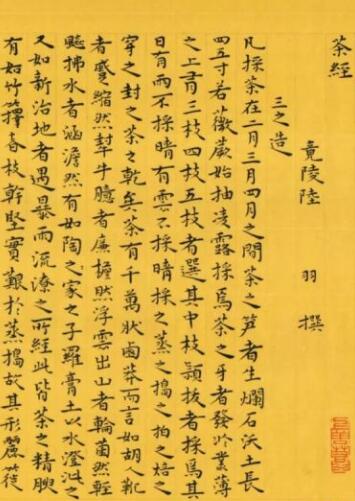 茶經
竟陵陸 羽 撰
三之造
凡採茶在二月三月四月之間茶之笋者生爛石沃土長
四五寸若薇蕨始抽凌露採焉茶之牙者發於叢薄
之上有三枝四枝五枝者選其中枝穎拔者採焉其
日有雨不採晴有雲不採晴採之蒸之搗之拍之焙之
穿之封之茶之乾矣茶有千萬狀鹵莽而言如胡人靴
者蹙縮然犎牛臆者廉襜然浮雲出山者輪菌然輕
飈拂水者涵澹然有如陶之家之子羅膏土以水澄泚之
又如新治地者遇暴而流潦之所經此皆茶之精腴
有如竹籜者枝幹堅實艱於蒸搗故其形麗簁